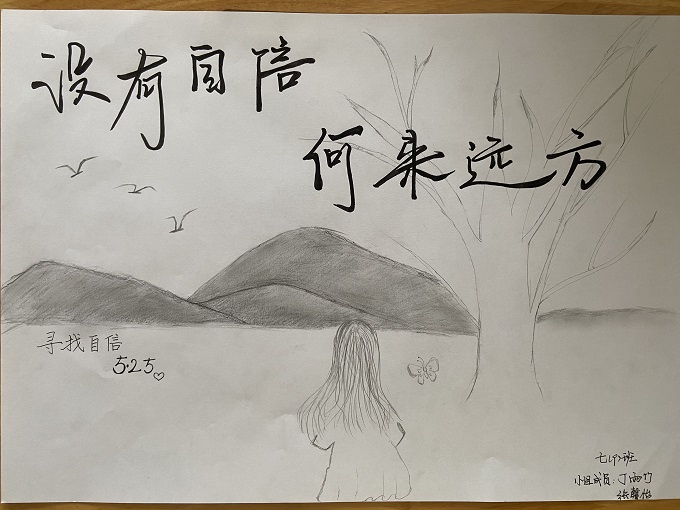 没有自信
何来远方
寻找自信
5.25♡
七(7)班
小组成员：丁雨竹
张馨怡